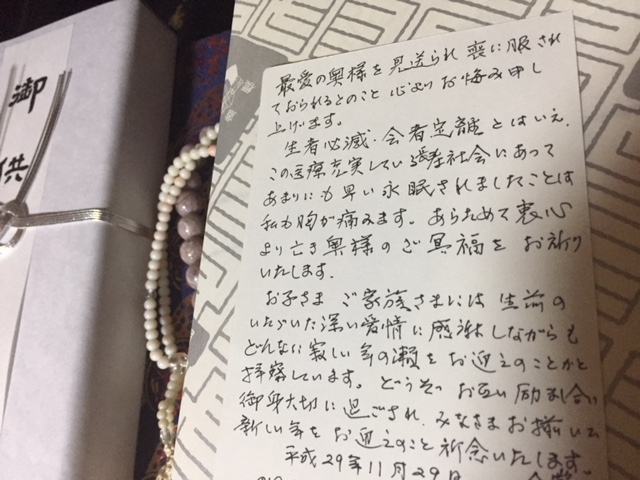 御
供
最愛の奥様を見送られ喪に服され
ておられるとのこと 心よりお悔み申し
上げます。
生者必滅・会者定離とはいえ、
この医療充実している現在社会にあって
あまりにも早い永眠されましたことは
私も胸が痛みます。あらためて衷心
より亡き奥様のご冥福をお祈り
いたします。
お子さま ご家族さまには生前の
いただいた深い愛情に感謝しながらも
どんなに寂しい年の瀬をお迎えのことかと
拝察しています。どうぞ お互い励まし合い
御身大切に過ごされ、みなさまお揃いで
新しい年をお迎えのこと祈念いたします。
平成29年11月29日